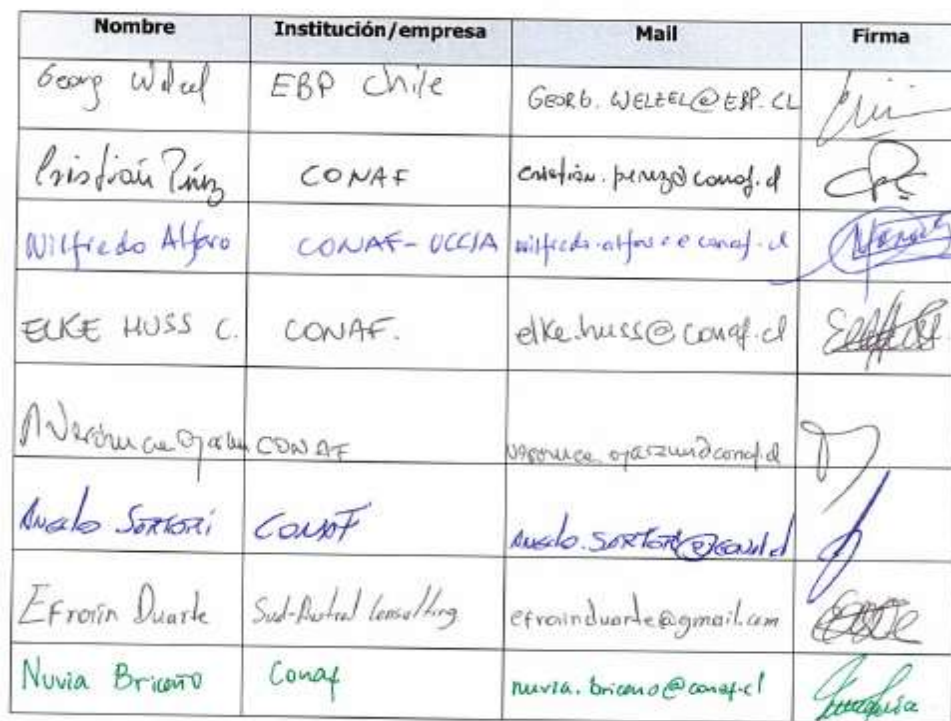 Nombre Institución/empresa Mail Firma
Georg Welzel EBP Chile GEORG.WELZEL@EBP.CL
Cristián Pérez CONAF cristian.perez@conaf.cl
Wilfredo Alfaro CONAF-UCCSA wilfredo.alfaro@conaf.cl
ELKE HUSS C. CONAF. elke.huss@conaf.cl
Verónica Oyarzun CONAF veronica.oyarzun@conaf.cl
Angelo Sartori CONAF Angelo.Sartori@conaf.cl
Efraín Duarte Sud-Austral Consulting efrainduarte@gmail.com
Nuvia Briceño Conaf nuvia.briceno@conaf.cl